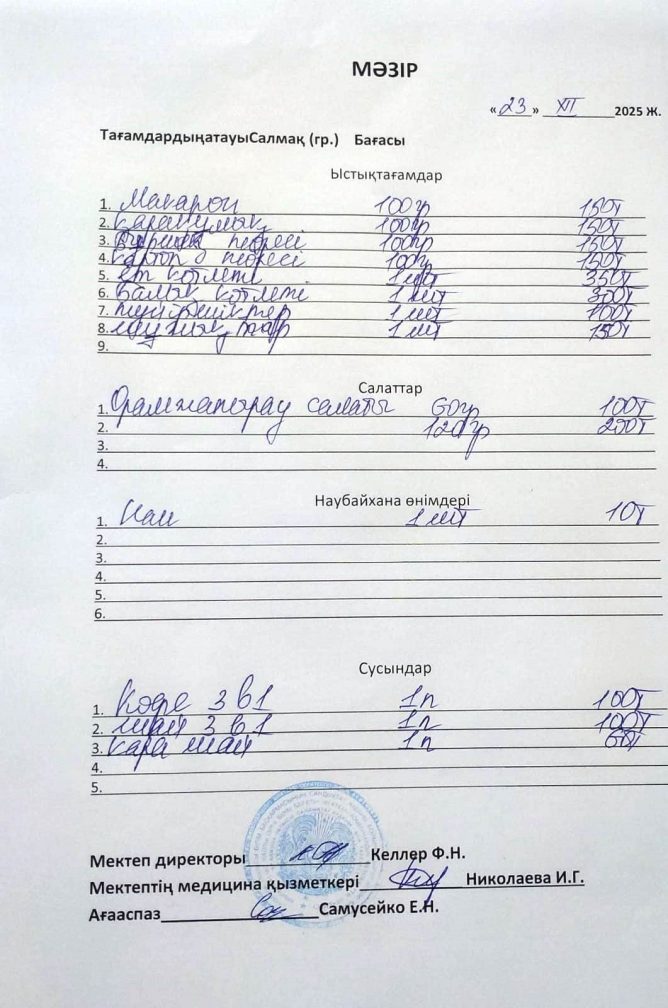 МӘЗІР
«23» XII 2025 Ж.
ТағамдардыңатауыСалмақ (гр.) Бағасы
Ыстықтағамдар
1. Макарон 100гр 150т
2. қарақұмық 100гр 150т
3. бұршақ пюресі 100гр 150т
4. картоп пюресі 100гр 150т
5. ет котлеті 1 шт 350т
6. балық котлеті 1 шт 300т
7. 1 шт 100т
8. 1 шт 150т
9.
Салаттар
1. Орамжапырақ салаты 60гр 100т
2. 120гр 200т
3.
4.
Наубайхана өнімдері
1. Нан 1 шт 10т
2.
3.
4.
5.
6.
Сусындар
1. Кофе 3 в 1 1п 100т
2. шай 3 в 1 1п 100т
3. қара шай 1п 60т
4.
5.
Мектеп директоры Келлер Ф.Н.
Мектептің медицина қызметкері Николаева И.Г.
Ағааспаз Самусейко Е.Н.